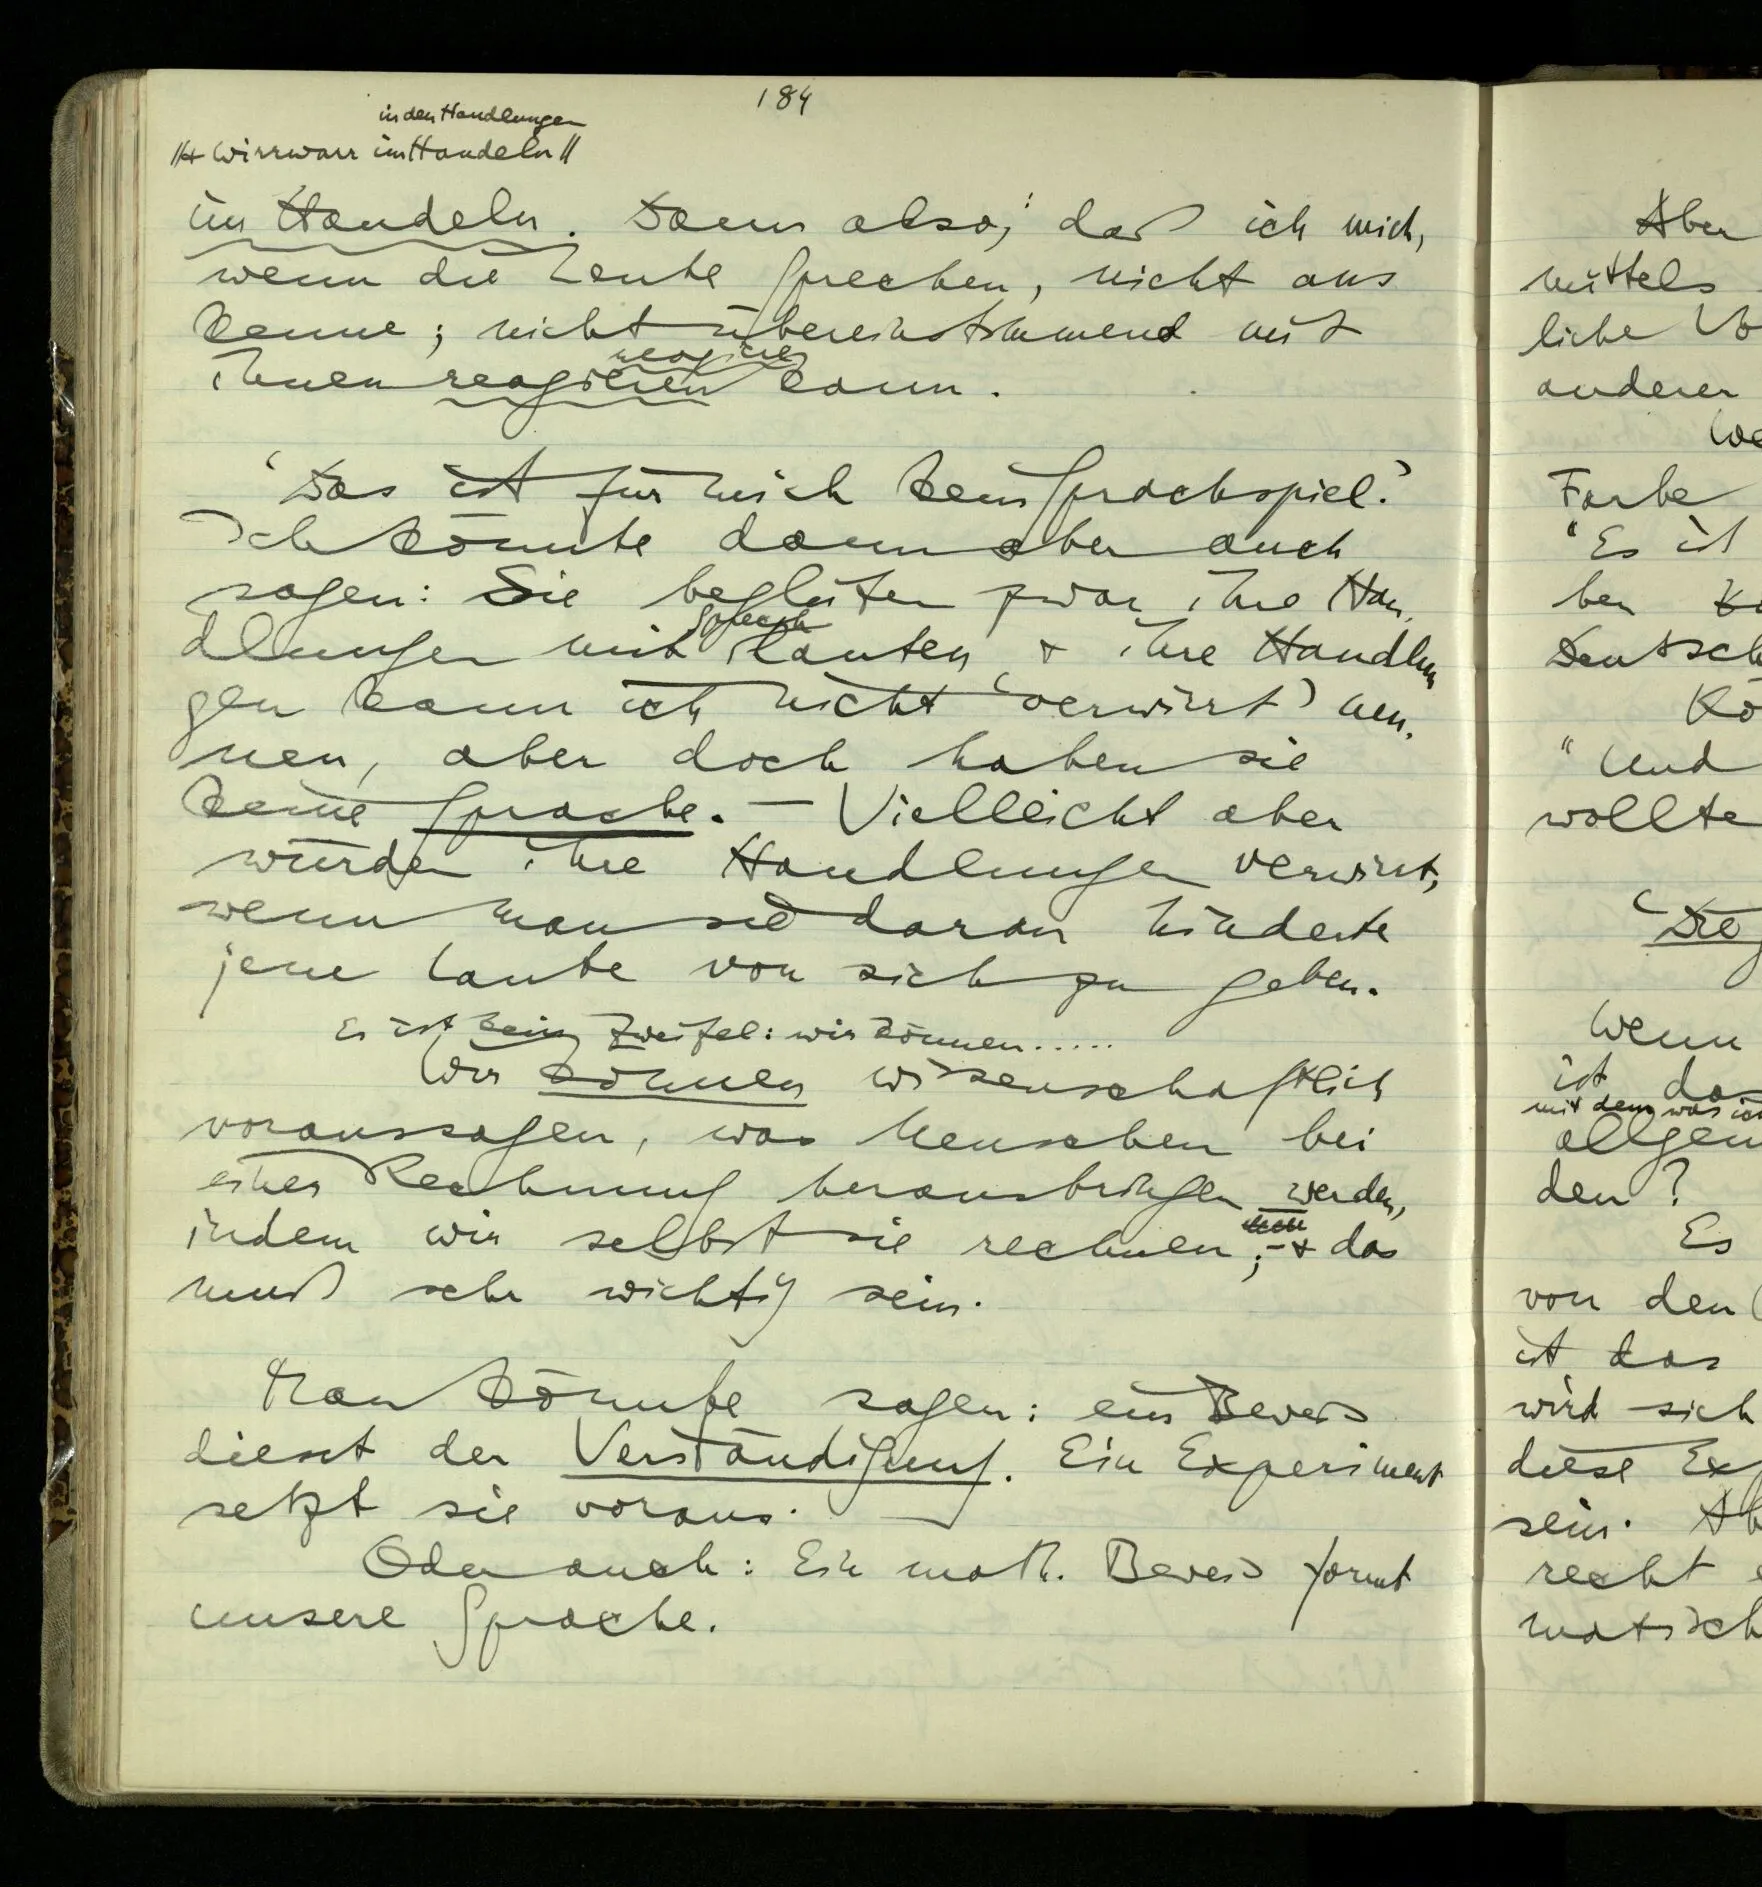 184
in den Handlungen
//+ Wirrwarr im Handeln//
im Handeln. Darin also, daß ich mich,
wenn die Leute sprechen, nicht aus
kenne; nicht übereinstimmend mit
reagieren
ihnen reagieren kann.
'Das ist für mich kein Sprachspiel.'
Ich könnte dann aber auch
sagen: Sie begleiten zwar ihre Han
Sprech
dlungen mit Lauten & ihre Handlun
gen kann ich nicht 'verwirrt' nen
nen, aber doch haben sie
keine Sprache. — Vielleicht aber
würden ihre Handlungen verwirrt,
wenn man sie daran hinderte
jene Laute von sich zu geben.
Es ist kein Zweifel: wir können.....
Wir können wissenschaftlich
voraussagen, was Menschen bei
einer Rechnung herausbringen werden,
indem wir selbst sie rechnen; – & das
muß sehr wichtig sein.
Man könnte sagen: ein Beweis
dient der Verständigung. Ein Experiment
setzt sie voraus.
Oder auch: Ein math. Beweis formt
unsere Sprache.
Aber
mittels
liche
anderer
Farbe
"Es ist
ben
Deutsch
"Und
wollte
'Die
Wenn
ist das
mit dem was ich
allgem
den?
Es
von den
ist das
wird sich
diese Ex
sein. Ab
recht
matisch